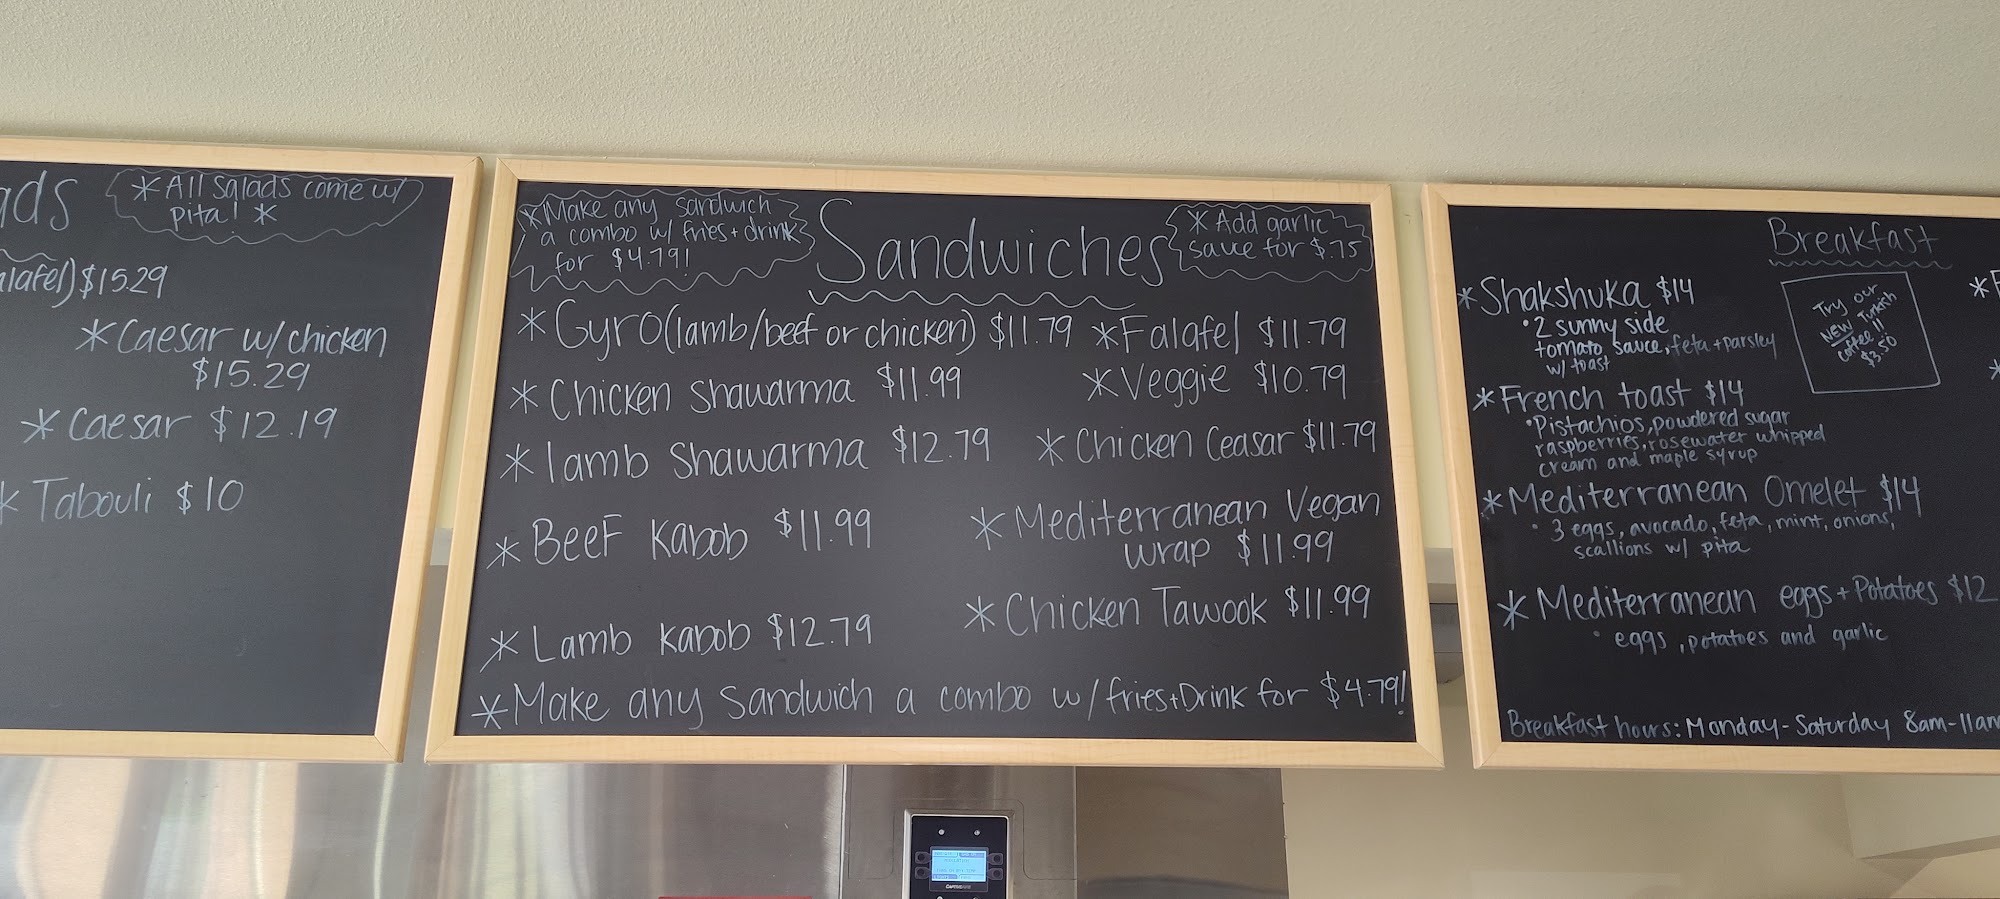 *All salads come w/
pita! *
$15.29
*Caesar w/chicken
$15.29
*Caesar $12.19
*Tabouli $10
*Make any sandwich
a combo w/ fries+drink
for $4.79!
Sandwiches
*Add garlic
sauce for $.75
*Gyro(lamb/beef or chicken) $11.79
*Chicken Shawarma $11.99
*lamb Shawarma $12.79
*Beef Kabob $11.99
*Lamb Kabob $12.79
*Falafel $11.79
*Veggie $10.79
*Chicken Ceasar $11.79
*Mediterranean Vegan
wrap $11.99
*Chicken Tawook $11.99
*Make any Sandwich a combo w/fries+Drink for $4.79!
Breakfast
Try our
NEW Turkish
coffee!!
$3.50
*Shakshuka $14
•2 sunny side
tomato sauce, feta+parsley
w/ toast
*French toast $14
•Pistachios, powdered sugar
raspberries, rosewater whipped
cream and maple syrup
*Mediterranean Omelet $14
•3 eggs, avocado, feta, mint, onions,
scallions w/ pita
*Mediterranean eggs+Potatoes $12
•eggs, potatoes and garlic
Breakfast hours: Monday-Saturday 8am-11am